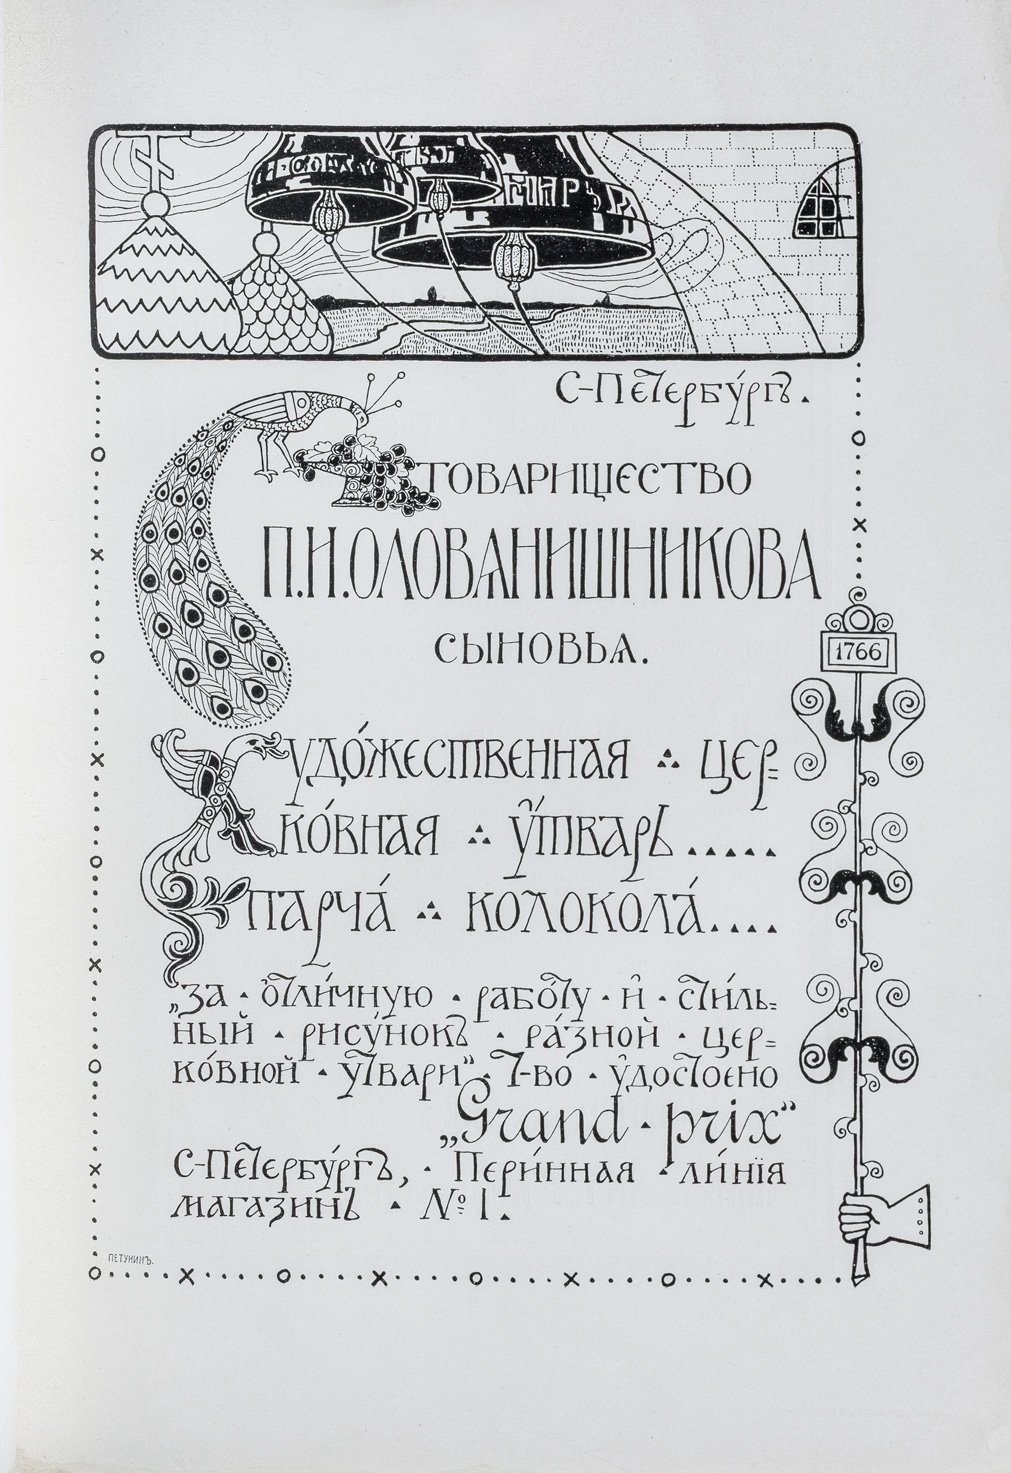 С-Петербу́ргъ.
ТОВАРИЩЕСТВО
П.И.ОЛОВѦНИШНИКОВА
СЫНОВЬѦ.
1766
Худо́жественная ∴ цер=
ко́вная ∴ у́тварь.....
парча́ ∴ колокола́....
„за · отли́чную · рабо́ту · и · сти́ль=
ный · рису́нокъ · ра́зной · цер=
ко́вной · утвари“ · Т-во · удостоено
„Grand · prix“
С-Петербу́ргъ, · Пери́нная · ли́нія
магази́нъ · № 1.
ПЕТУНИНЪ.